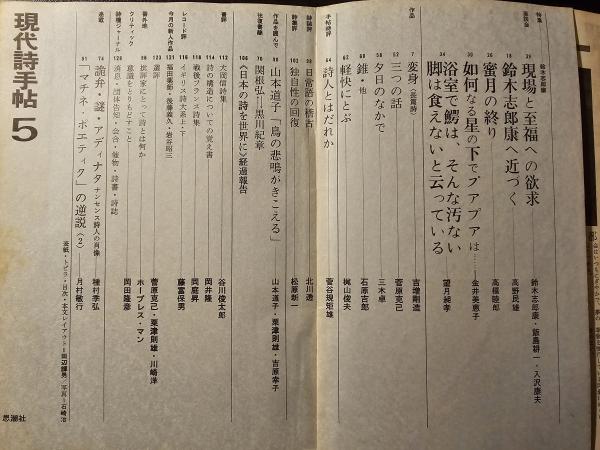 特集
鈴木志郎康
座談会
39 現場と至福への欲求 鈴木志郎康・飯島耕一・入沢康夫
18 鈴木志郎康へ近づく 高野民雄
26 蜜月の終り 高橋睦郎
30 如何なる星の下でプアプアは…… 金井美恵子
34 浴室で鰐は、そんな汚ない脚は食えないと云っている 望月昶孝
作品
7 変身〈長篇詩〉 吉増剛造
52 三つの話 菅原克己
58 夕日のなかで 三木卓
68 錐・他 石原吉郎
62 軽快にとぶ 梶山俊夫
手帖時評
64 詩人とはだれか 菅谷規矩雄
詩誌評
98 日常語の稽古 北川透
詩集評
102 独自性の回復 松原新一
作品を囲んで
86 山本道子「鳥の悲鳴がきこえる」 山本道子・粟津則雄・吉原幸子
往復書簡
70 関根弘―黒川紀章
106 《日本の詩を世界に》経過報告
書評
112 大岡信詩集 谷川俊太郎
114 詩の構造についての覚え書 岡井隆
118 戦後フランス詩集 岡庭昇
レコード評
116 イギリス詩大系上・下 藤富保男
今月の新人作品
131 福田菊郎・後藤義久・岩谷昭三
123 選評 菅原克己・粟津則雄・川崎洋
番外地
139 批評家にとって詩とは何か ホープレス・マン
クリティック
意識をとりもどすこと 岡田隆彦
詩壇ジャーナル
128 消息・団体告知・会合・催物・詩書・詩誌
連載
74 詭弁・謎・アディナタ ナンセンス詩人の肖像 種村季弘
91 「マチネ・ポエティク」の逆説〈2〉 月村敏行
表紙・トビラ・目次・本文レイアウト=田辺輝男/写真=石崎治
現代詩手帖 5
思潮社